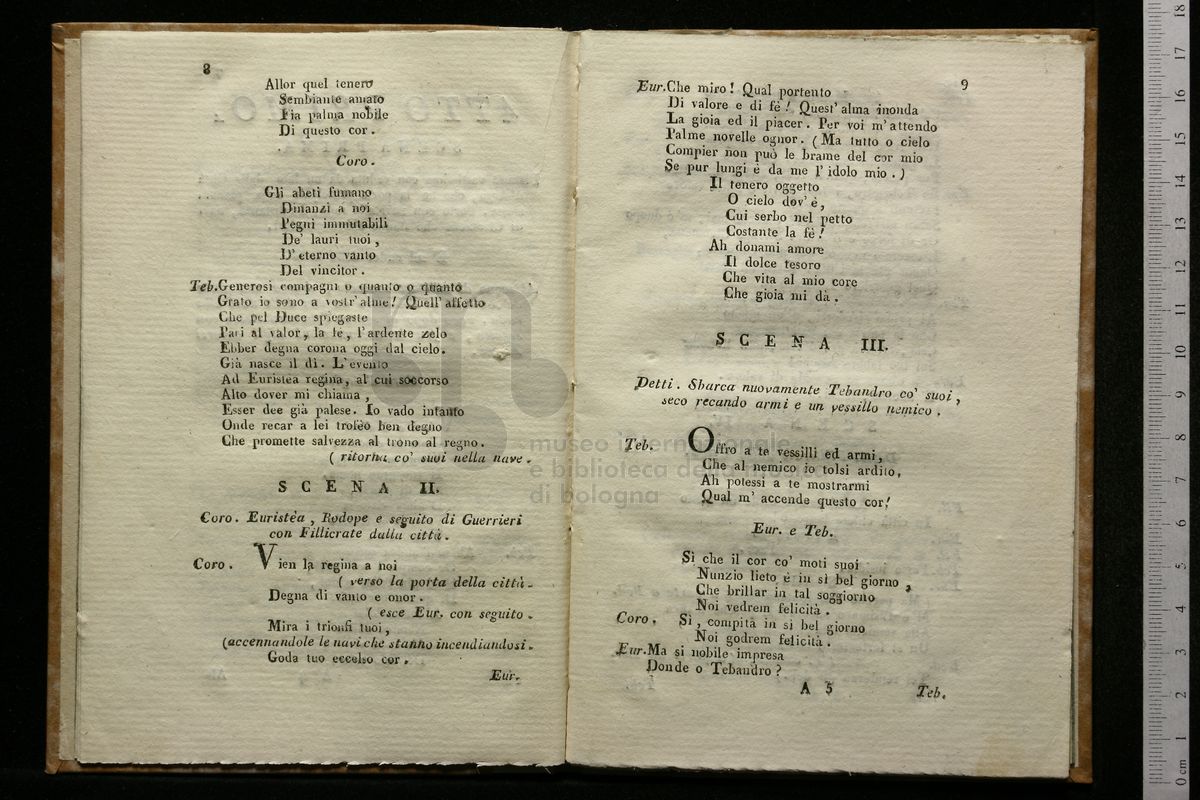 8
Allor quel tenero
Sembiante amato
Fia palma nobile
Di questo cor.
Coro.
Gli abeti fumano
Dinanzi a noi
Pegni immutabili
De' lauri tuoi,
D' eterno vanto
Del vincitor.
Teb. Generosi compagni o quanto o quanto
Grato io sono a vostr' alme! Quell' affetto
Che pel Duce spiegaste
Pari al valor, la fè, l' ardente zelo
Ebber degna corona oggi dal cielo.
Già nasce il dì. L' evento
Ad Euristea regina, al cui soccorso
Alto dover mi chiama,
Esser dee già palese. Io vado intanto
Onde recar a lei trofèo ben degno
Che promette salvezza al trono al regno.
( ritorna co' suoi nella nave.
SCENA II.
Coro. Euristèa, Rodope e seguito di Guerrieri
con Fillicrate dalla città.
Coro. Vien la regina a noi
( verso la porta della città.
Degna di vanto e onor.
( esce Eur. con seguito.
Mira i trionfi tuoi,
(accennandole le navi che stanno incendiandosi.
Goda tuo eccelso cor.
Eur.
9
Eur. Che miro! Qual portento
Di valore e di fè! Quest' alma inonda
La gioia ed il piacer. Per voi m' attendo
Palme novelle ognor. (Ma tutto o cielo
Compier non può le brame del cor mio
Se pur lungi è da me l' idolo mio.)
Il tenero oggetto
O cielo dov' è,
Cui serbo nel petto
Costante la fè!
Ah donami amore
Il dolce tesoro
Che vita al mio core
Che gioia mi dà.
SCENA III.
Detti. Sbarca nuovamente Tebandro co' suoi,
seco recando armi e un vessillo nemico.
Teb. Offro a te vessilli ed armi,
Che al nemico io tolsi ardito,
Ah potessi a te mostrarmi
Qual m' accende questo cor!
Eur. e Teb.
Sì che il cor co' moti suoi
Nunzio lieto è in sì bel giorno,
Che brillar in tal soggiorno
Noi vedrem felicità.
Coro. Sì, compita in sì bel giorno
Noi godrem felicità.
Eur. Ma si nobile impresa
Donde o Tebandro?
A 5
Teb.
museo internazionale
e biblioteca della musica
di bologna
0 cm 1 2 3 4 5 6 7 8 9 10 11 12 13 14 15 16 17 18